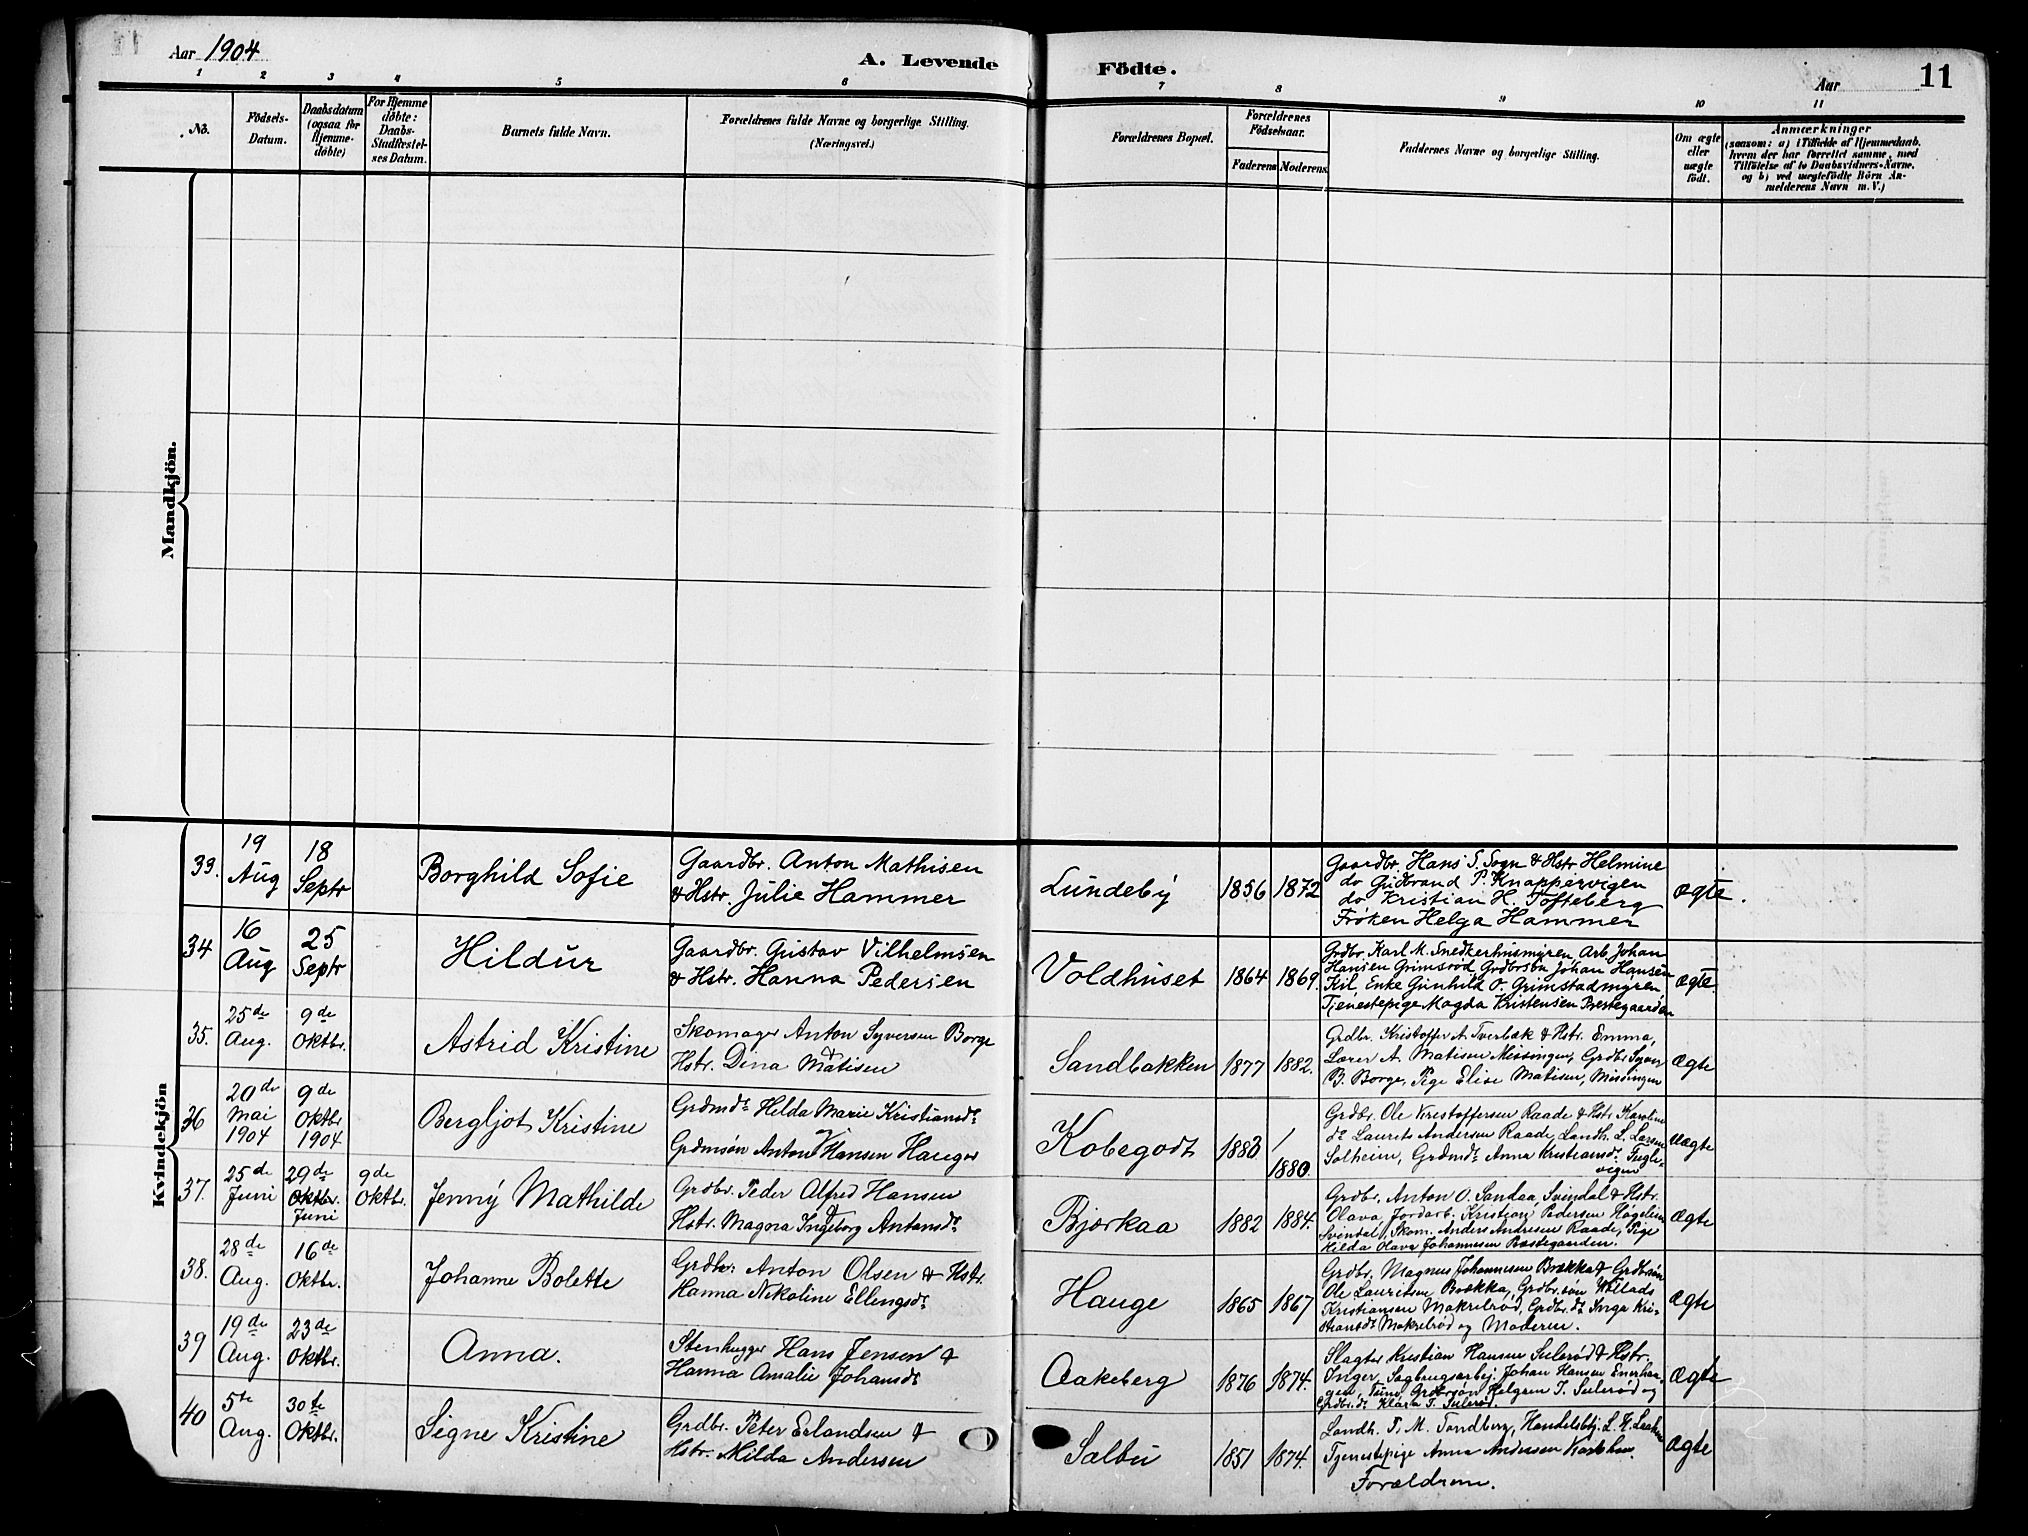 Aar 1904
A. Levende Födte.
Aar 11
1 2 3 4 5 6 7 8 9 10 11
No.
Födsels-
Datum.
Daabsdatum
(ogsaa for
Hjemme-
döbte)
For Hjemme
döbte:
Daabs-
Stadfæstel-
ses Datum.
Barnets fulde Navn.
Forældrenes fulde Navne og borgerlige Stilling.
(Næringsvei.)
Forældrenes Bopæl.
Forældrenes
Födselsaar.
Faderens Moderens
Faddernes Navne og borgerlige Stilling.
Om ægte
eller
uægte
födt.
Anmærkninger
(saasom: a) i Tilfælde af Hjemmedaab,
hvem der har forrettet samme, med
Tilföielse af to Daabsvidners Navne,
og b) ved uægtefödte Börn An-
melderens Navn m. V.)
Mandkjön.
Kvindekjön
33.
19
Aug
18
Septr
Borghild Sofie
Gaardbr. Anton Mathisen
& Hstr. Julie Hammer
Lundeby
1856
1872
Gaardbr. Hans S. Sogn & Hstr. Helmine
do Gudbrand P. Knappervigen
do Kristian H. Tofteberg
Frøken Helga Hammer
ægte.
34
16
Aug
25
Septr
Hildur
Gaardbr. Gustav Vilhelmsen
& Hstr. Hanna Pedersen
Voldhuset
1864
1869.
Grdbr. Karl M. Snedkerhusmyren Arb. Johan
Hansen Grimsrød Grdbrsøn Johan Hansen
Kil Enke Gunhild O. Grimstadmyren
Tjenestepige Magda Kristensen Prestegaarden
ægte.
35.
25de
Aug.
9de
Oktbr.
Astrid Kristine
Skomager Anton Syversen Borge
&
Hstr. Dina Matisen
Sandbakken
1877
1882.
Grdbr. Kristoffer A. Tverbæk & Hstr. Emma,
Lærer A. Matisen Missingen, Grdbr. Syver
B. Borge, Pige Elise Matisen, Missingen
Ægte
36
20de
Mai
1904
9de
Oktbr
1904
Bergljot Kristine
Grdmdt. Helda Marie Kristiansdt.
Grdmsøn Anton Hansen Hauger
Kobegodt
1883
/
1880.
Grdbr. Ole Kristoffersen Raade & Hstr. Karoline
dt. Laurits Andersen Raade, Landh. L. Larsen
Solheim, Grdmdt. Anna Kristiansdt. Fugle-
vigen
uægte
37.
25de
Juni
29de
Oktbr.
Juni
9de
Oktbr.
Jenny Mathilde
Grdbr. Peder Alfred Hansen
&
Hstr. Magna Ingeborg Antonsdt.
Bjørkaa
1882
1884.
Grdbr. Anton O. Sandaa, Svindal & Hstr.
Olava, Jordarb. Kristian Pedersen Høgelien
Svendal, Skom. Anders Andresen Raade, Pige
Hilda Olava Johannesen Prestegaarden.
Ægte
38.
28de
Aug.
16de
Oktbr.
Johanne Bolette
Grdbr. Anton Olsen & Hstr.
Hanna Nikoline Ellingsdt.
Hauge
1865
1867
Grdbr. Magnus Johannesen Brække & Grdbrsøn
Ole Lauritsen Brække, Grdbr.søn
Kristiansen Makrelrød, Grdbr.dt. Inga Kri-
stiansdt. Makrelrød og Moderen.
Ægte
39
19de
Aug.
23de
Oktbr.
Anna.
Stenhugger Hans Jensen &
Hanna Amalie Johansdt.
Aakeberg
1876
1874.
Slagter Kristian Hansen Sulerød & Hstr.
Inger, Sagbrugsarbej. Johan Hansen Enerhau-
gen, Grdbrsøn Helgren T. Sulerød og
Grdbr.dt. Klara T. Sulerød.
Ægte
40
5te
Aug.
30te
Oktbr.
Signe Kristine
Grdbr. Peter Erlandsen &
Hstr. Milda Andersen
Salbu
1851
1874.
Landh. T. M. Tandberg, Handelsbtj. L. K.
Tjenestepige Anna Andersen
Forældrene.
Ægte